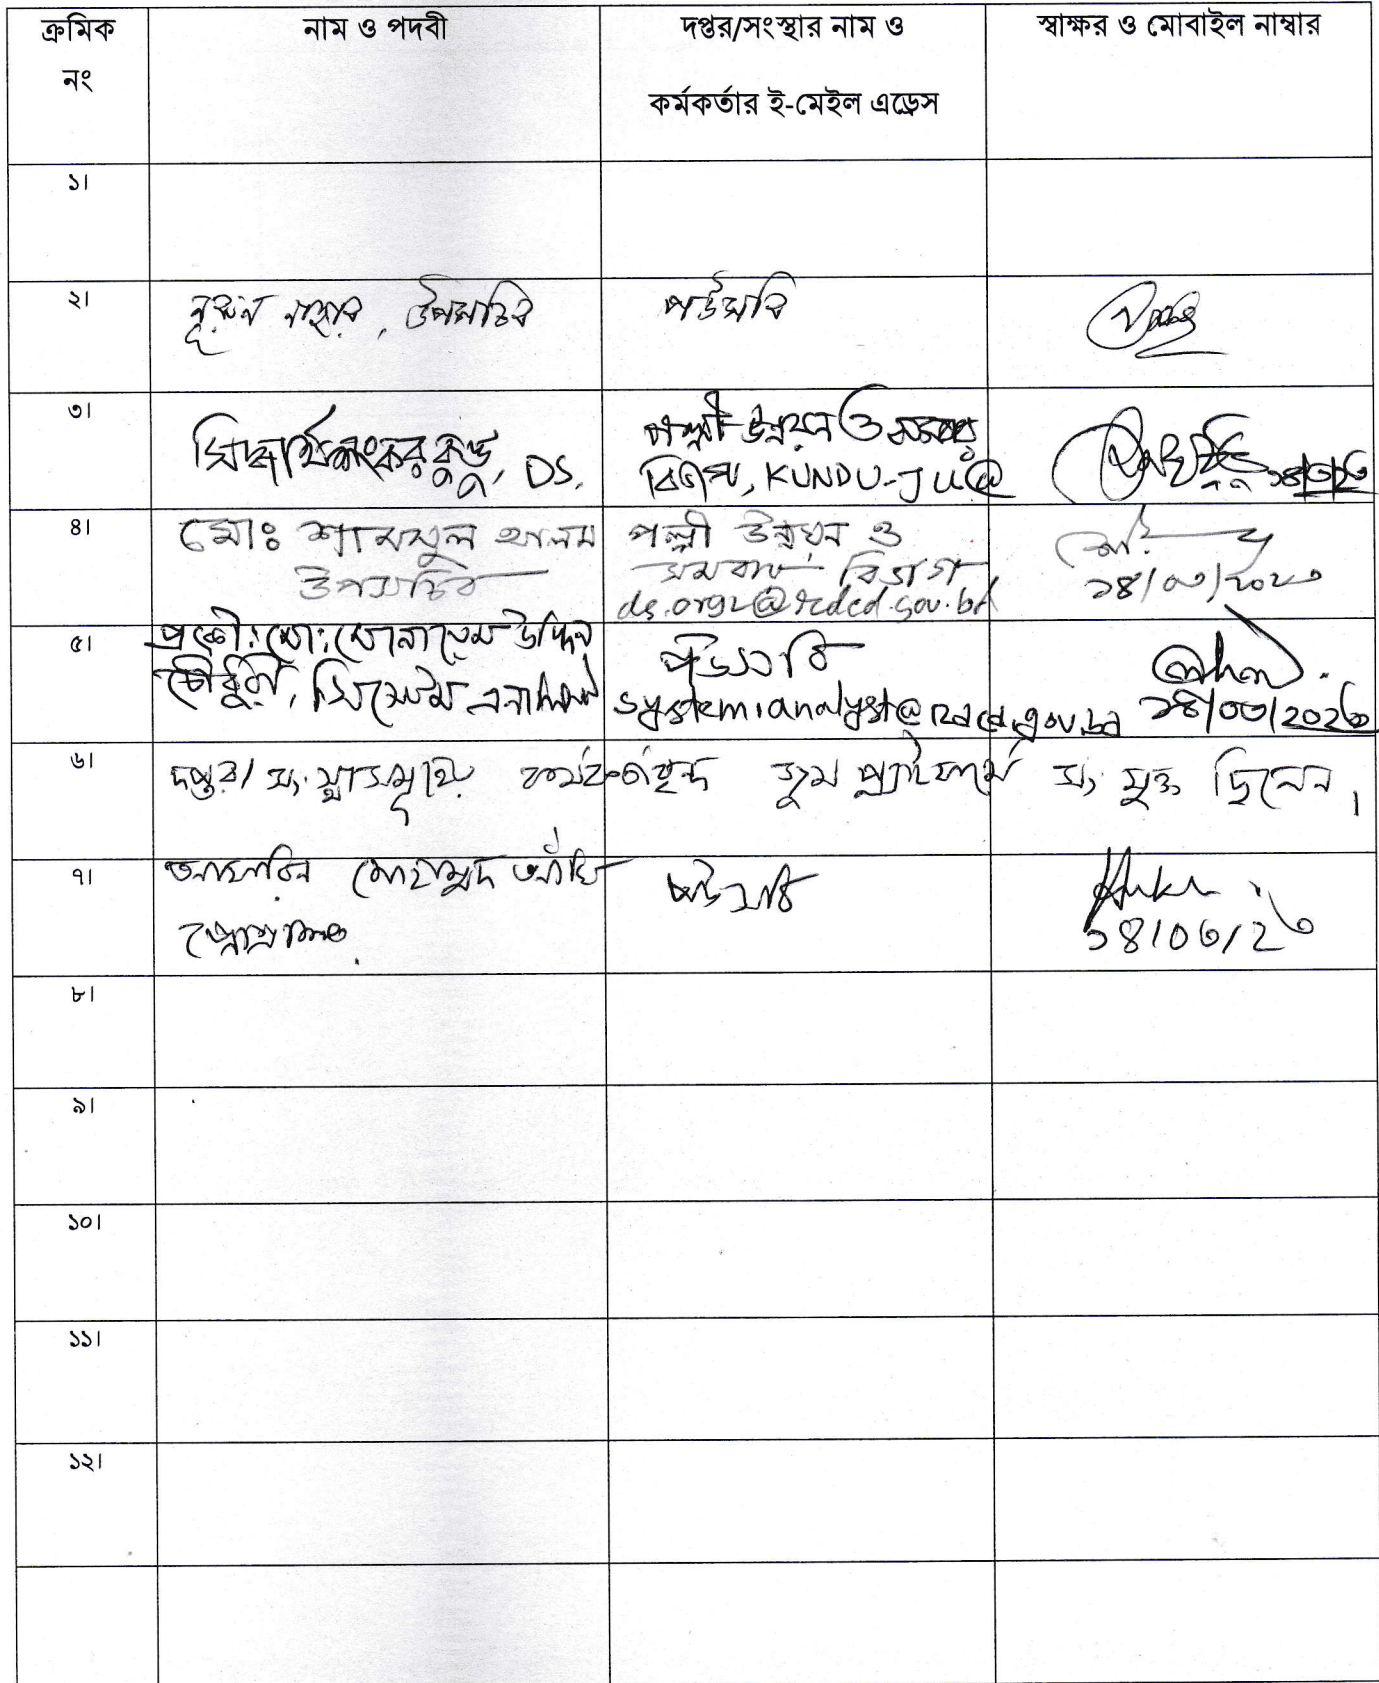 ক্রমিক নং
নাম ও পদবী
দপ্তর/সংস্থার নাম ও
কর্মকর্তার ই-মেইল এড্রেস
স্বাক্ষর ও মোবাইল নাম্বার
১।
২। নূরুন নাহার, উপসচিব পউসবি
৩। সিদ্ধার্থ শংকর কুন্ডু, DS. পল্লী উন্নয়ন ও সমবায়
বিভাগ, KUNDU-JU@
৪। মোঃ শামসুল আলম পল্লী উন্নয়ন ও
উপসচিব সমবায় বিভাগ ১৪/০৩/২০২৩
ds.org2@rdcd.gov.bd
৫। প্রকৌ: মো: মোনায়েম উদ্দিন পউসবি
চৌধুরী, সিস্টেম এনালিস্ট systemianalyst@rdcd.gov.bd ১৪/০৩/২০২৩
৬। দপ্তর/সংস্থাসমূহের কর্মকর্তাবৃন্দ জুম প্ল্যাটফার্মে সংযুক্ত ছিলেন।
৭। মোহাম্মদ পউসবি
১৪/০৩/২৩
৮।
৯।
১০।
১১।
১২।